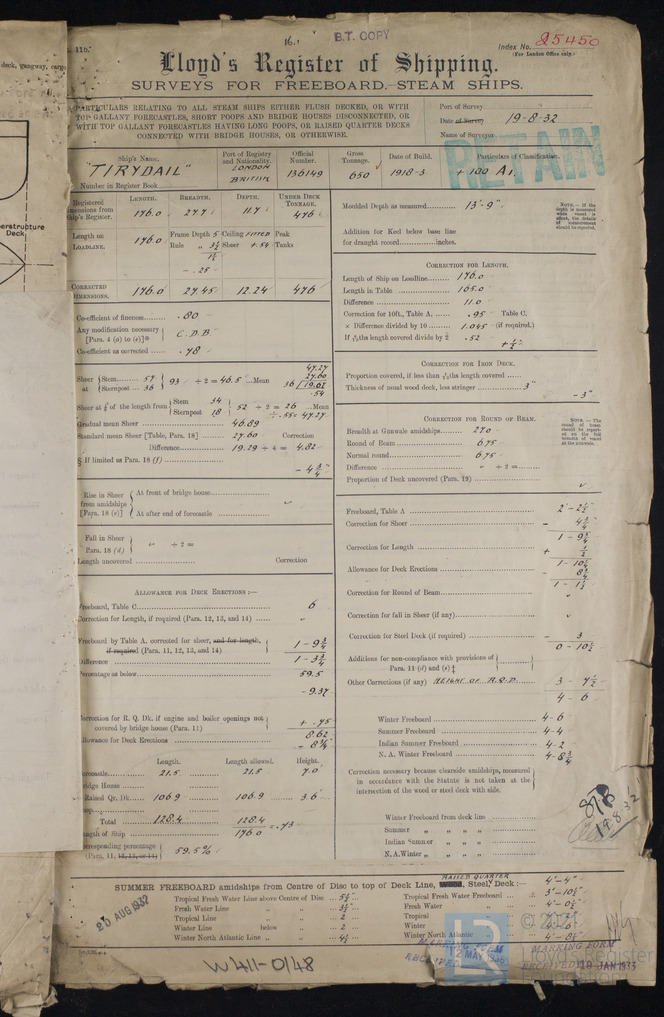 deck, gangway, cargo
erstructure
Deck
16.
B.T. COPY
116.
Index No. 25450
(For London Office only.)
Lloyd's Register of Shipping.
SURVEYS FOR FREEBOARD.—STEAM SHIPS.
PARTICULARS RELATING TO ALL STEAM SHIPS EITHER FLUSH DECKED, OR WITH
TOP GALLANT FORECASTLES, SHORT POOPS AND BRIDGE HOUSES DISCONNECTED, OR
WITH TOP GALLANT FORECASTLES HAVING LONG POOPS, OR RAISED QUARTER DECKS
CONNECTED WITH BRIDGE HOUSES, OR OTHERWISE.
Port of Survey
Date of Survey 19-8-32
Name of Surveyor
RETAIN
Ship's Name. Port of Registry and Nationality. Official Number. Gross Tonnage. Date of Build. Particulars of Classification.
"TIRYDAIL" LONDON BRITISH 136149 650 1918-3 + 100 A1.
Number in Register Book
Registered Dimensions from Ship's Register. LENGTH. BREADTH. DEPTH. UNDER DECK TONNAGE.
176.0 27.7 11.7 476
Length on LOADLINE. 176.0 Frame Depth 5 Ceiling FITTED Peak
Rule " 3½ Sheer + .54 Tanks
1½
- .25
CORRECTED DIMENSIONS. 176.0 27.45 12.24 476
Co-efficient of fineness .80
Any modification necessary [Para. 4 (a) to (e)]* C.D.B
Co-efficient as corrected .78
Sheer at Stem 57 Sternpost 36 93 ÷ 2 = 46.5 Mean
47.27
27.60
36 19.67
.54
Sheer at ⅛ of the length from Stem 34 Sternpost 18 52 ÷ 2 = 26 Mean
÷ .55 = 47.27
Gradual mean Sheer 46.89
Standard mean Sheer [Table, Para. 18] 27.60 Correction
Difference 19.29 ÷ 4 = 4.82
§ If limited as Para. 18 (f)
- 4¾
Rise in Sheer from amidships [Para. 18 (e)]
At front of bridge house
At after end of forecastle
Fall in Sheer Para. 18 (d) " ÷ 2 =
Length uncovered Correction
ALLOWANCE FOR DECK ERECTIONS :—
Freeboard, Table C. 6
Correction for Length, if required (Para. 12, 13, and 14)
Freeboard by Table A. corrected for sheer, and for length, if required (Para. 11, 12, 13, and 14) 1 - 9¾
Difference 1 - 3¾
Percentage as below 59.5
- 9.37
Correction for R. Q. Dk. if engine and boiler openings not covered by bridge house (Para. 11) + .75
8.62
Allowance for Deck Erections - 8¾
Length. Length allowed. Height.
Forecastle 21.5 21.5 7.0
Bridge House
Raised Qr. Dk. 106.9 106.9 3.6
Poop
Total 128.4 128.4
Length of Ship 176.0 = .73
Corresponding percentage (Para. 11, 12, 13, or 14) 59.5%
Moulded Depth as measured 13'-9"
NOTE.—If the depth is measured
Addition for Keel below base line
for draught record inches.
CORRECTION FOR LENGTH.
Length of Ship on Loadline 176.0
Length in Table 165.0
Difference 11.0
Correction for 10ft., Table A. .95 Table C.
× Difference divided by 10 1.045 (if required.)
If 6/10ths length covered divide by 2 .52
+ ½
CORRECTION FOR IRON DECK.
Proportion covered, if less than 7/10ths length covered
Thickness of usual wood deck, less stringer 3"
- 3"
CORRECTION FOR ROUND OF BEAM.
NOTE.—The round of beam should be reported on the full breadth of vessel at the gunwale.
Breadth at Gunwale amidships 27.0
Round of Beam 6.75
Normal round 6.75
Difference " ÷ 2 =
Proportion of Deck uncovered (Para. 19)
Freeboard, Table A 2' - 2½
Correction for Sheer - 4¾
1 - 9¾
Correction for Length + ½
1 - 10¼
Allowance for Deck Erections - 8¾
1 - 1½
Correction for Round of Beam
Correction for fall in Sheer (if any)
Correction for Steel Deck (if required) - 3
0 - 10½
Additions for non-compliance with provisions of Para. 11 (d) and (e)
Other Corrections (if any) HEIGHT OF R.Q.D. 3 - 7½
4 - 6
Winter Freeboard 4 - 6
Summer Freeboard 4 - 4
Indian Summer Freeboard 4 - 2
N. A. Winter Freeboard 4 - 8¾
Correction necessary because clearside amidships, measured
in accordance with the Statute is not taken at the
intersection of the wood or steel deck with side.
Winter Freeboard from deck line
Summer " " "
Indian Summer " " "
N.A. Winter " " "
19.8.32
RAISED QUARTER
SUMMER FREEBOARD amidships from Centre of Disc to top of Deck Line, Wood, Steel, Deck :— 4'-4"
Tropical Fresh Water Line above Centre of Disc 5½ Tropical Fresh Water Freeboard 3'-10½
Fresh Water Line " " 3½ Fresh Water " 4'-0½
Tropical Line " " 2 Tropical
Winter Line below " 2 Winter
Winter North Atlantic Line " " 4¾ Winter North Atlantic
20 AUG 1932
W411-0148
MARKING FORM
RECEIVED 12 MAY
MARKING FORM
RECEIVED 19 JAN 1933
LR
© 2021
Lloyd's Register
Foundation